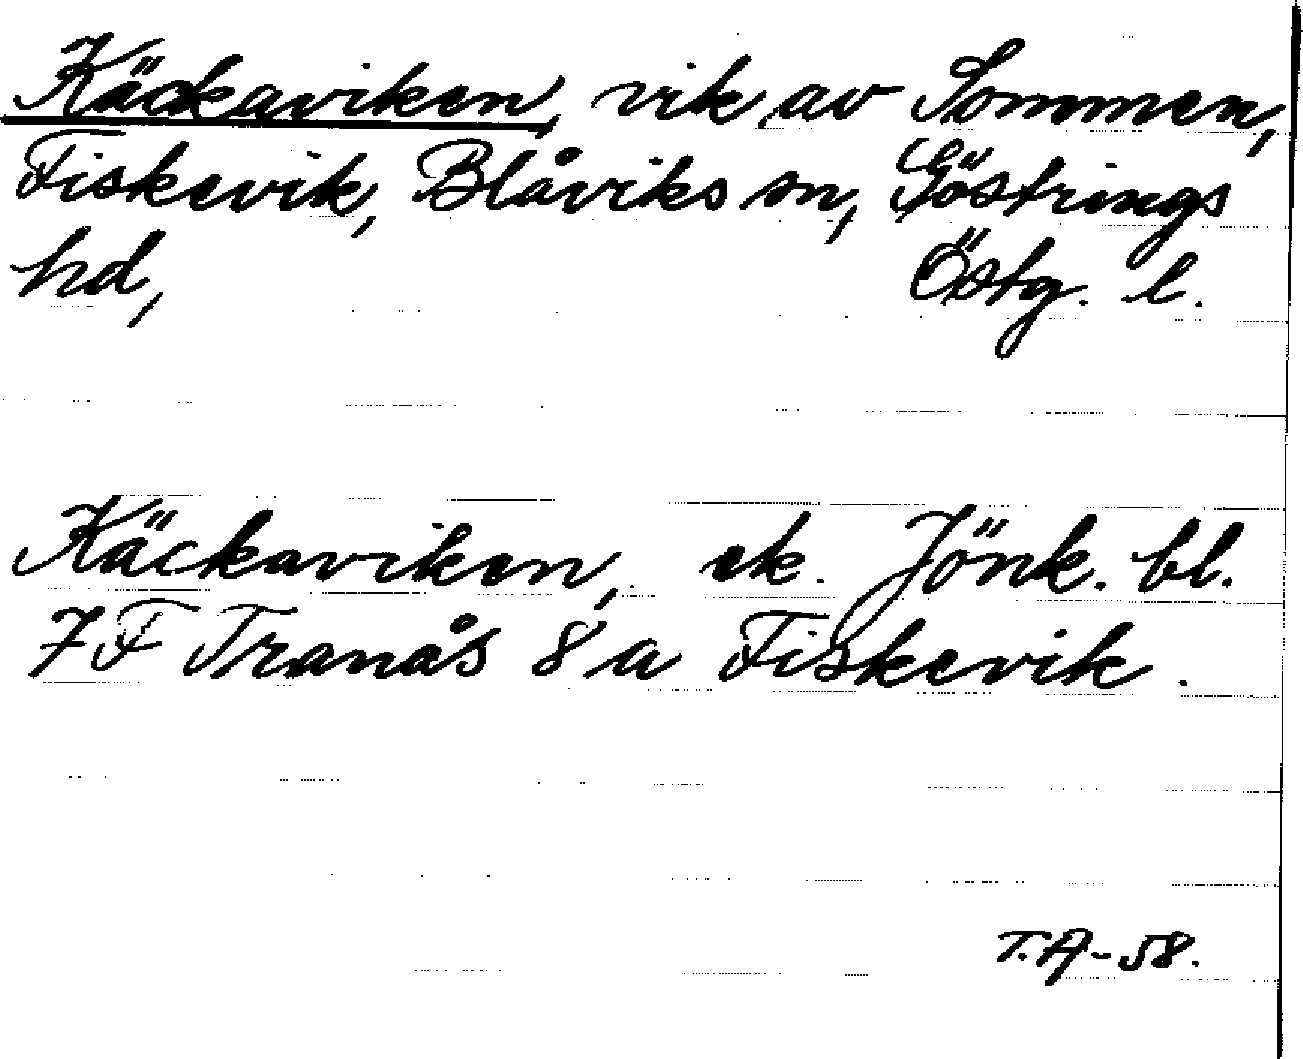 Käckaviken, vik av Sommen,
Fiskevik, Blåviks sn, Göstrings
hd, Östg. l.
Käckaviken, ek. Jönk. bl.
7 F Tranås 8 a Fiskevik.
T.A-58.